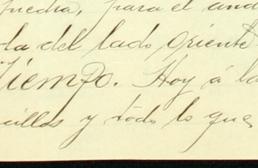 piedra, para el and
la del lado Oriente
Tiempo. Hoy á la
cillos y todo lo que